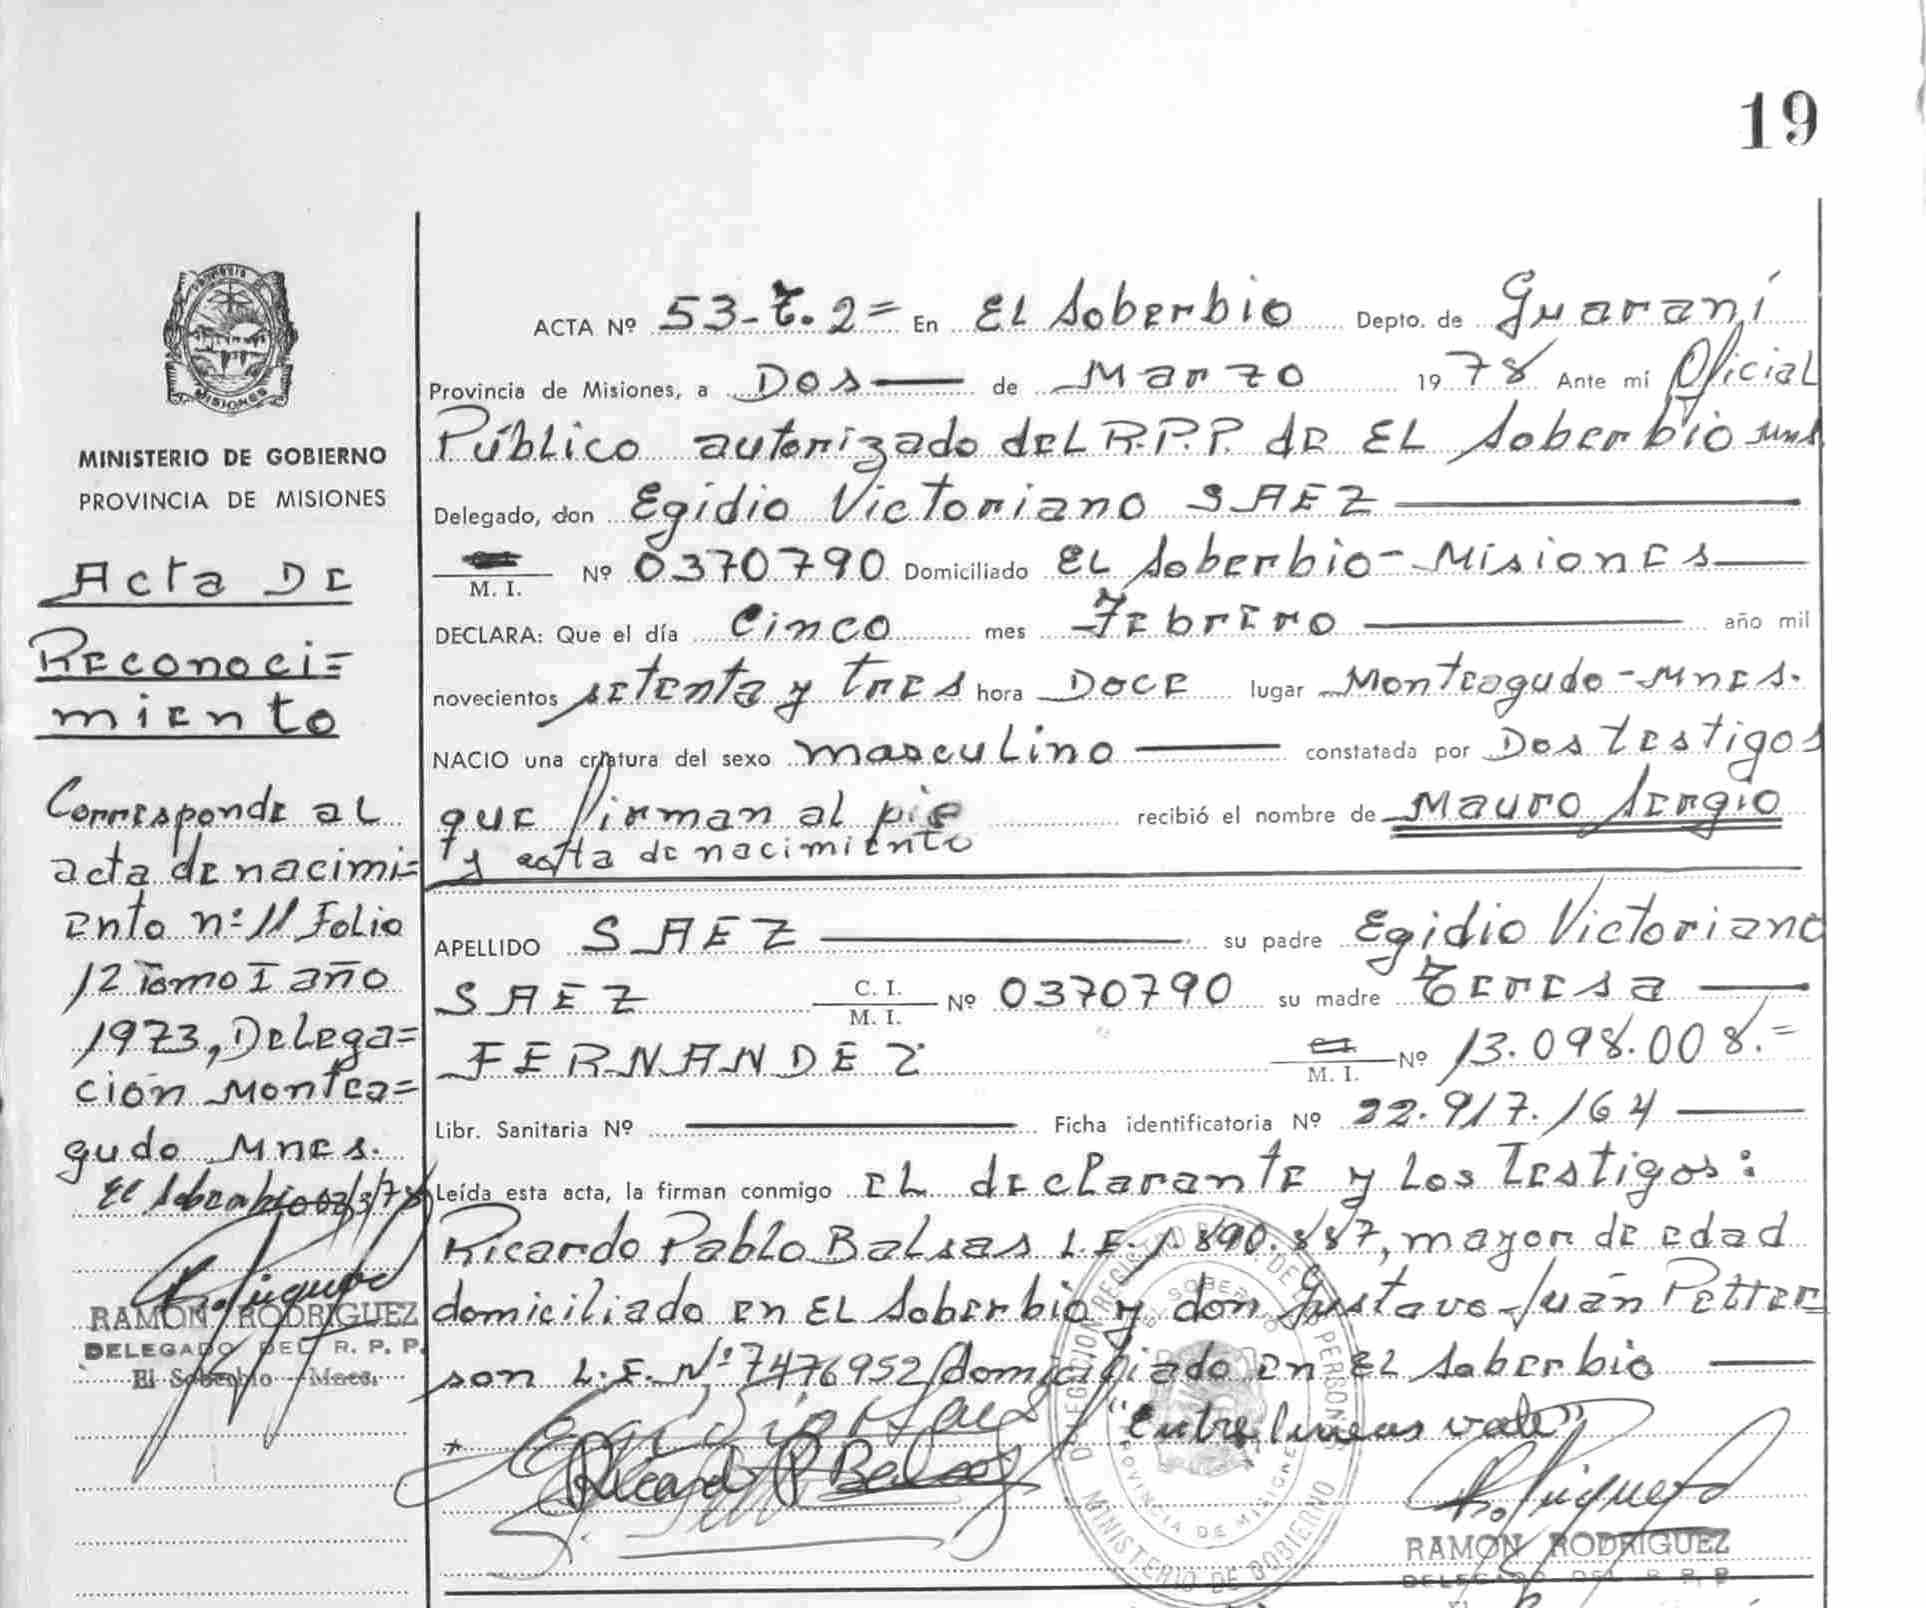 19
PROVINCIA
MISIONES
MINISTERIO DE GOBIERNO
PROVINCIA DE MISIONES
Acta De
Reconoci=
miento
Corresponde al
acta de nacimi=
ento nº 11 Folio
12 Tomo I año
1973, Delega=
ción Montea=
gudo Mnes.
El Soberbio 02/3/78
RAMON RODRIGUEZ
DELEGADO DEL R. P. P.
El Soberbio - Mnes.
ACTA Nº 53-T.2= En El Soberbio Depto. de Guaraní
Provincia de Misiones, a Dos de Marzo 1978 Ante mí Oficial
Público autorizado del R.P.P. de El Soberbio Mns
Delegado, don Egidio Victoriano SAEZ
M. I. Nº 0370790 Domiciliado El Soberbio - Misiones
DECLARA: Que el día Cinco mes Febrero año mil
novecientos setenta y tres hora Doce lugar Monteagudo - Mnes.
NACIO una criatura del sexo masculino constatada por Dos testigos
que firman al pie recibió el nombre de Mauro Sergio
y acta de nacimiento
APELLIDO SAEZ su padre Egidio Victoriano
SAEZ C. I. M. I. Nº 0370790 su madre Teresa
FERNANDEZ C.I. M. I. Nº 13.098.008.=
Libr. Sanitaria Nº Ficha identificatoria Nº 22.917.164
Leída esta acta, la firman conmigo el declarante y los testigos:
Ricardo Pablo Balsas L.E. 1.890.887, mayor de edad
domiciliado en El Soberbio y don Gustavo Juan Petter
son L.E. Nº 7476952 domiciliado en El Soberbio
"Entre lineas vale"
Egidio Saes
Ricardo P Balsas
DELEGACION REGISTRO PROV. DE LAS PERSONAS
EL SOBERBIO
PROVINCIA DE MISIONES
MINISTERIO DE GOBIERNO
RAMON RODRIGUEZ
DELEGADO DEL R. P. P.